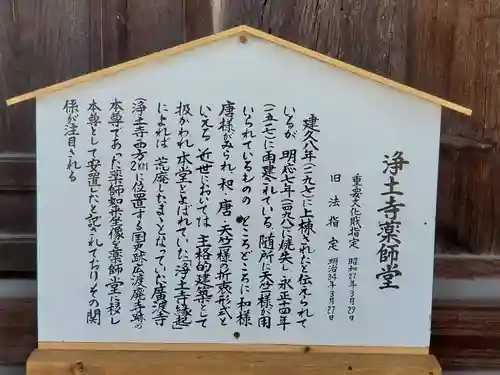 浄土寺薬師堂
重要文化財指定 昭和27年3月29日
旧法指定 明治34年3月27日
建久八年(一一九七)に上棟されたと伝えられて
いるが、明応七年(一四九八)に焼失し、永正十四年
(一五一七)に再建されている。随所に天竺様が用
いられているものの、ところどころに和様
唐様がみられ、和、唐、天竺様の折衷形式と
いえる。近世においては、主格的建築として
扱かわれ、本堂とよばれていた。「浄土寺縁起」
によれば、荒廃したままとなっていた廣渡寺
(浄土寺西方2㎞に位置する国史跡広渡廃寺跡)の
本尊であった薬師如来坐像を薬師堂に移し
本尊として安置したと記されており、その関
係が注目される